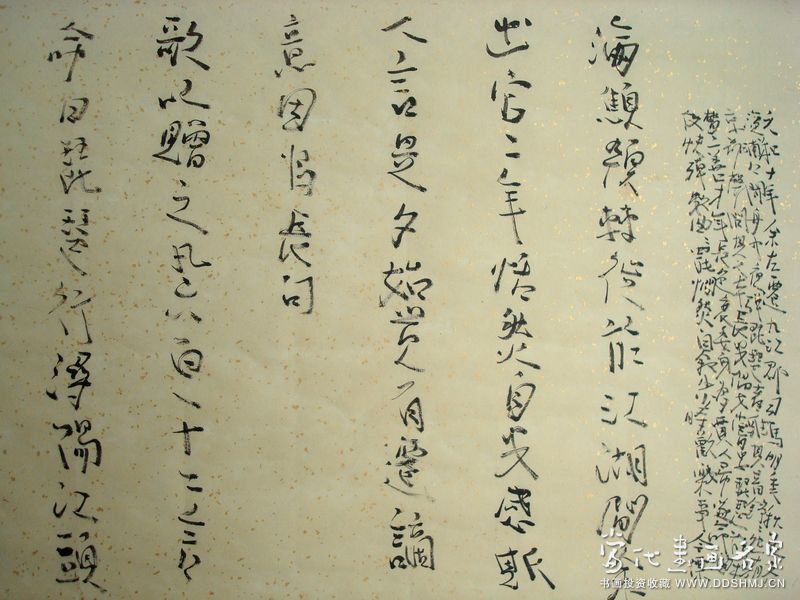 元和十年余左遷九江郡司馬明年秋
湓浦口聞舟中夜彈琵琶者聽其音錚錚然有
京都聲問其人本長安倡女嘗學琵琶
曹二善才年長色衰委身為賈人婦遂命酒
使快彈數曲曲罷憫然自敘少小時歡樂事今漂
淪顦顇轉徙於江湖間余
出官二年恬然自安感斯
人言是夕始覺有遷謫
意因為長句
歌以贈之凡六百一十二言
命曰琵琶行潯陽江頭
當代書畫名家
书画投资收藏 WWW.DDSHMJ.CN